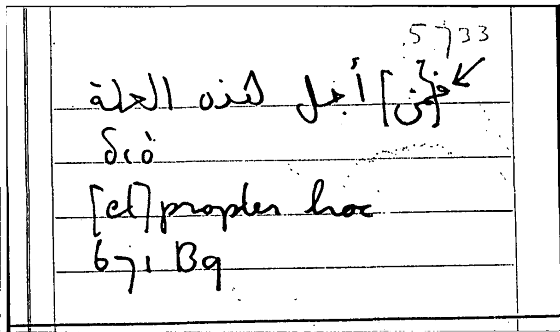 5733
[فمن] أجل هذه العلة
διό
[et] propter hoc
671 B9